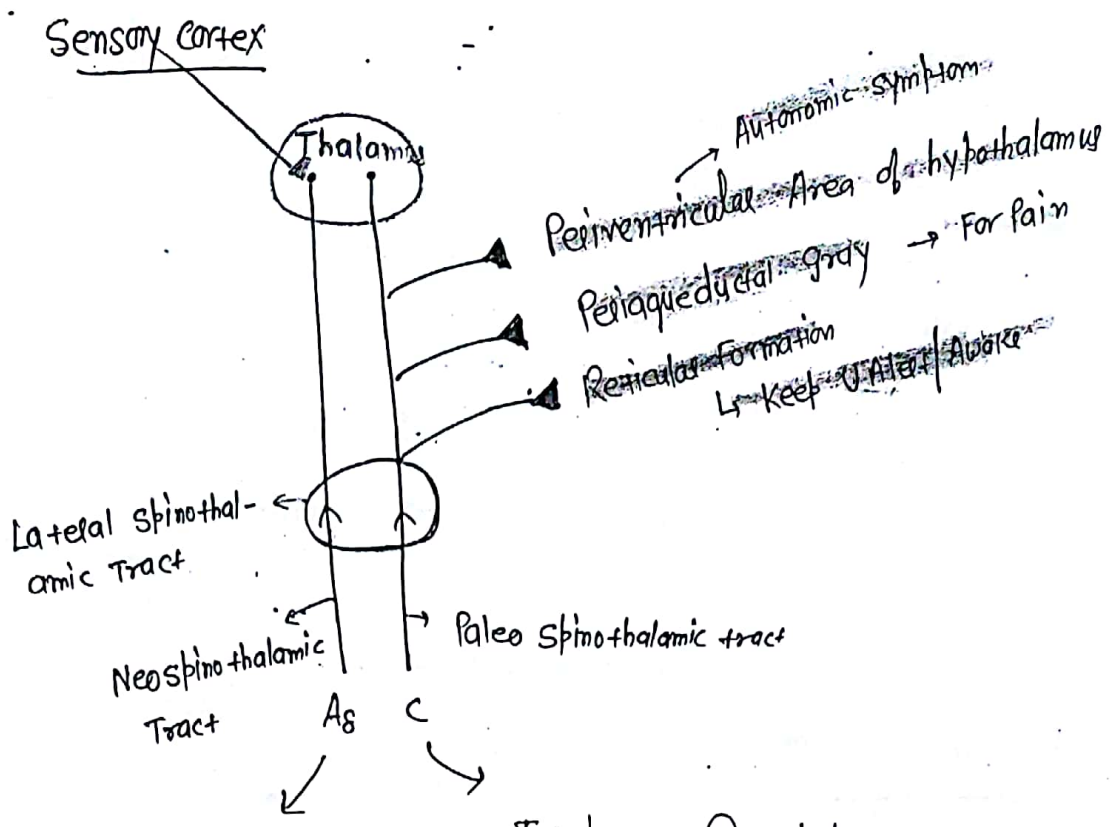 Sensory Cortex
Thalamus
Autonomic symptom
Periventricular Area of hypothalamus
Periaqueductal gray → For Pain
Reticular Formation
↳ Keep U Alert/Awake
Lateral Spinothal-
amic Tract
Neospinothalamic
Tract
Paleo Spinothalamic tract
Aδ C